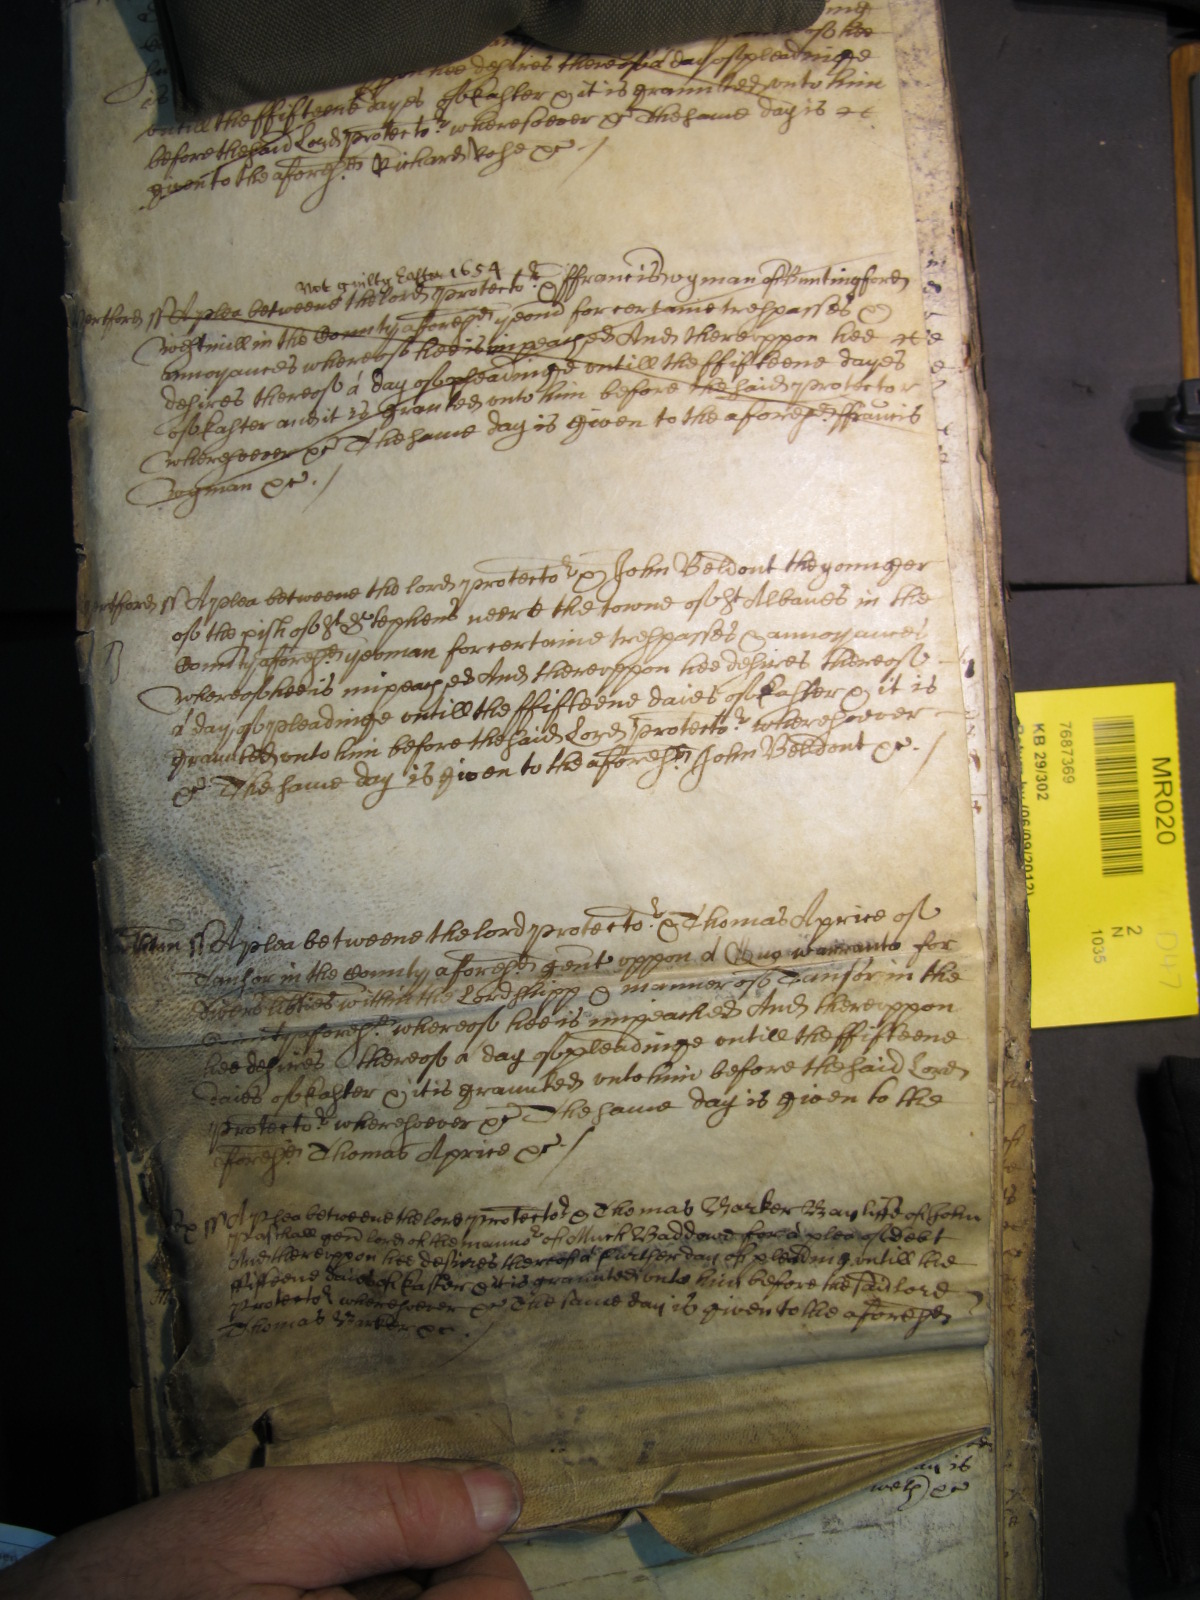 hee desires thereof a day of pleadinge
untill the ffifteene dayes of Easter & it is graunted unto him
before the said Lord Protector wheresoever &c The same day is
given to the aforesd Richard Rose &c
Not guilty Easter 1654
Hertford ss A plea betweene the lord Protector & ffrancis Wyman of Buntingford
Westmill in the County aforesd yeom for certaine trespasses &
annoyances whereof hee is impeached And thereuppon hee
desires thereof a day of pleadinge untill the ffifteene dayes
of Easter and it is graunted unto him before the said Protector
wheresoever &c The same day is given to the aforesd ffrancis
Wyman &c
Hertford ss A plea betweene the lord Protector & John Beldont the younger
of the pish of St Stephens neere the towne of St Albanes in the
County aforesd yeoman for certaine trespasses & annoyances
whereof hee is impeached And thereuppon hee desires thereof
a day of pleadinge untill the ffifteene daies of Easter & it is
graunted unto him before the said Lord Protector wheresoever
&c The same day is given to the aforesd John Beldont &c
ss A plea betweene the lord Protector & Thomas Aprice of
Tansor in the County aforesd gent uppon a Quo warranto for
divers libties within the Lordshipp & mannor of Tansor in the
County aforesd whereof hee is impeached And thereuppon
hee desires thereof a day of pleadinge untill the ffifteene
daies of Easter & it is graunted unto him before the said Lord
Protector wheresoever &c The same day is given to the
aforesd Thomas Aprice &c
ss A plea betweene the lord Protector & Thomas Barker Bayliffe of John
Paschall gent lord of the mannor of Much Baddowe for a plea of debt
And thereuppon hee desires thereof a further day of pleading untill the
ffifteene daies of Easter & it is graunted unto him before the said lord
Protector wheresoever &c The same day is given to the aforesd
Thomas Barker &c
is
&c
MR020
7687369
KB 29/302
2
N
1035
D47